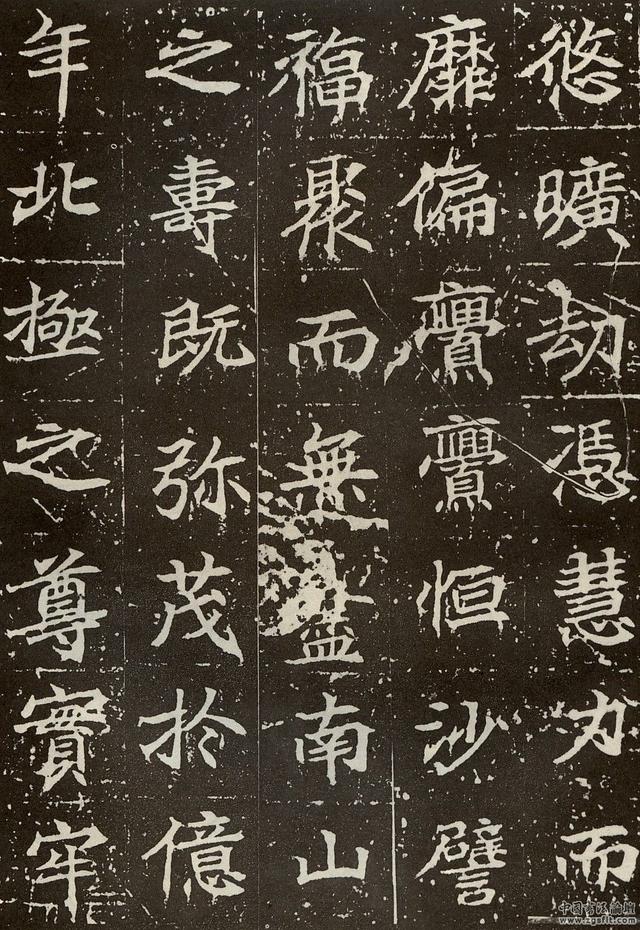 悠曠劫憑慧力而
靡偏亹亹恒沙譬
福聚而無盡南山
之壽既弥茂於億
年北極之尊實牢
中国书法論壇
www.zgsflt.com